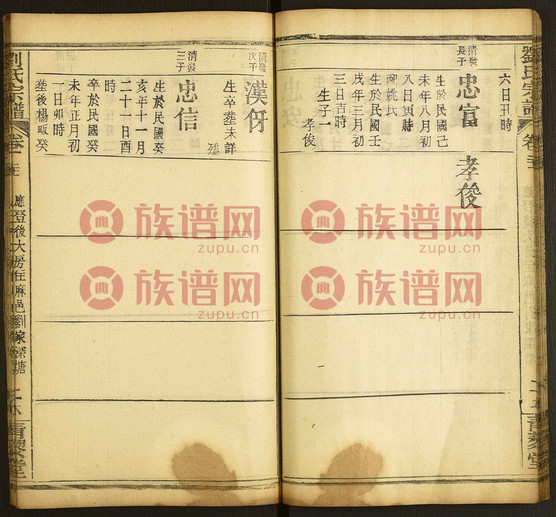 劉氏宗譜
卷
六日丑時
清發長子
忠富
孝俊
生於民國己
未年八月初
八日寅時
配姚氏
生於民國壬
戌年三月初
三日吉時
生子一
孝俊
二五
青藜堂
清發次子
漢伢
生卒塟未詳
殇
清發三子
忠信
生於民國癸
亥年十一月
二十一日酉
時
卒於民國癸
未年正月初
一日卯時
塟後楊畈
劉氏宗譜
卷
應登後大房住麻邑劉家
二六
青藜堂
族谱网
zupu.cn
族谱网
zupu.cn
族谱网
zupu.cn
族谱网
zupu.cn